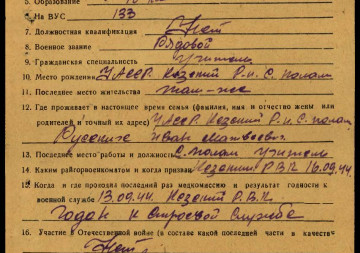 5. Образование
6. На ВУС 133
7. Должностная квалификация Нет
8. Военное звание Рядовой
9. Гражданская специальность учитель
10. Место рождения УАССР Кезский Р-н С.
11. Последнее место жительства там-же
12. Где проживает в настоящее время семья (фамилия, имя и отчество жены или
родителей и точный их адрес) УАССР Кезский Р-н С.
Русских Иван Матвеевич
13. Последнее место работы и должность учитель
14. Каким райгорвоенкоматом и когда призван Кезским РВК 16.09.44.
15. Когда и где проходил последний раз медкомиссию и результат годности к
военной службе 13.09.44. Кезский Р.В.К.
Годен к Строевой Службе
16. Участие в Отечественной войне (в составе какой последней части и в качестве
Нет